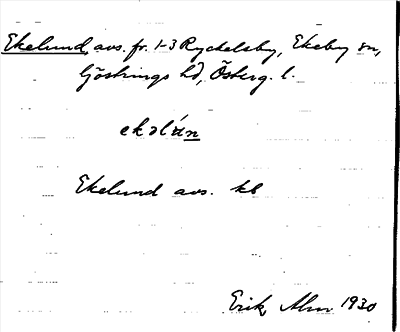 Ekelund, avs. fr. 1-3 Ryckelsby, Ekeby sn,
Göstrings hd, Österg. l.
ekəlún
Ekelund avs. kb
Erik Alm 1930